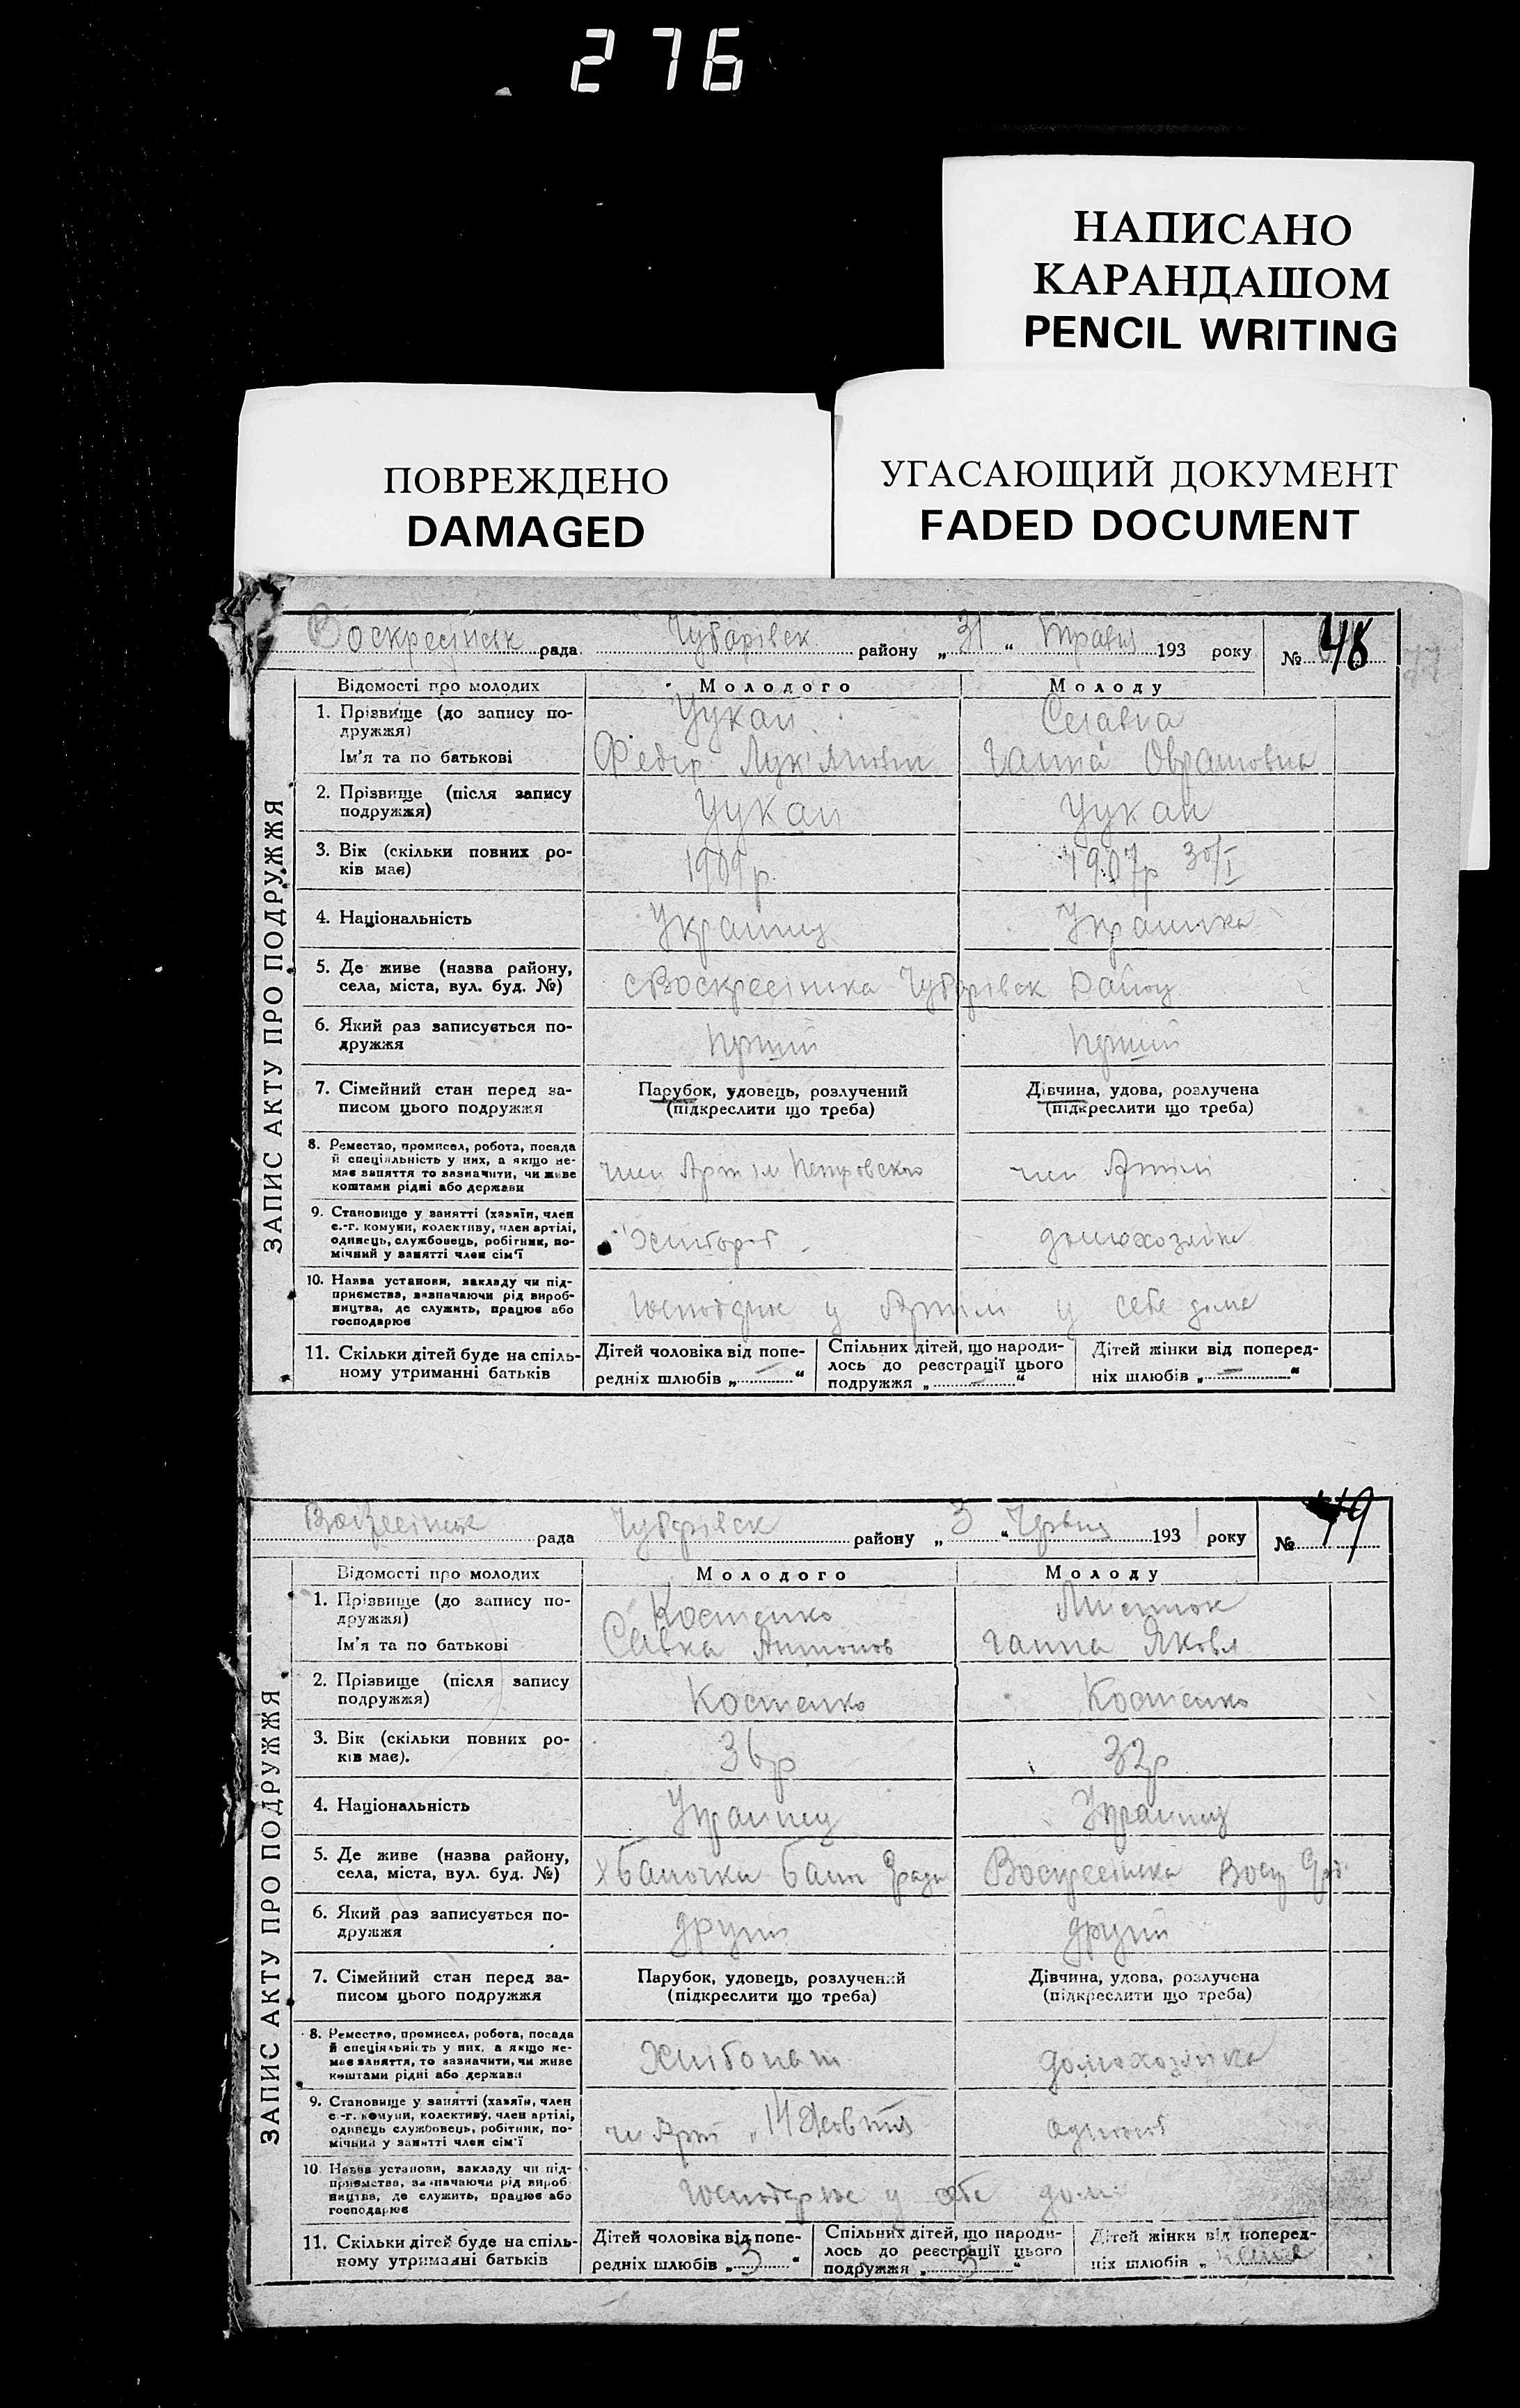 276
НАПИСАНО
КАРАНДАШОМ
PENCIL WRITING
ПОВРЕЖДЕНО
DAMAGED
УГАСАЮЩИЙ ДОКУМЕНТ
FADED DOCUMENT
Воскресінськ рада Чубарівск району „31“ травня 193 року № 48
77
ЗАПИС АКТУ ПРО ПОДРУЖЖЯ
Відомості про молодих Молодого Молоду
1. Прізвище (до запису по- Цукан
дружжя)
Ім'я та по батькові Федір Ганна
2. Прізвище (після запису Цукан Цукан
подружжя)
3. Вік (скільки повних ро- 1909р. 1907р 30/I
ків має)
4. Національність Украинц Украинка
5. Де живе (назва району, с Воскресінка Чубарівск Району
села, міста, вул. буд. №)
6. Який раз записується по- перший перший
дружжя
7. Сімейний стан перед за- Парубок, удовець, розлучений Дівчина, удова, розлучена
писом цього подружжя (підкреслити що треба) (підкреслити що треба)
8. Ремество, промисел, робота, посада
й спеціяльність у них, а якщо не-
має заняття то зазначити, чи живе член Арт ім Петровского член Артілі
коштами рідні або держави
9. Становище у занятті (хазяїн, член
с.-г. комуни, колективу, член артілі,
одинець, службовець, робітник, по- хлібороб домохозяйка
мічний у занятті член сім'ї
10. Назва установи, закладу чи під-
приємства, зазначаючи рід вироб-
ництва, де служить, працює або у Артілі у себе дома
господарює
11. Скільки дітей буде на спіль- Дітей чоловіка від попе- Спільних дітей, що народи- Дітей жінки від поперед-
ному утриманні батьків редніх шлюбів „—“ лось до реєстрації цього ніх шлюбів „—“
подружжя „—“
рада Чубарівск району „3“ Червня 1931 року № 49
ЗАПИС АКТУ ПРО ПОДРУЖЖЯ
Відомості про молодих Молодого Молоду
1. Прізвище (до запису по- Костенко Листюк
дружжя)
Ім'я та по батькові Савка Антонов Ганна Яковл
2. Прізвище (після запису Костенко Костенко
подружжя)
3. Вік (скільки повних ро- 36р 32р
ків має).
4. Національність Украинец Украинец
5. Де живе (назва району, Воскресінка
села, міста, вул. буд. №)
6. Який раз записується по- другий другий
дружжя
7. Сімейний стан перед за- Парубок, удовець, розлучений Дівчина, удова, розлучена
писом цього подружжя (підкреслити що треба) (підкреслити що треба)
8. Ремество, промисел, робота, посада
й спеціяльність у них, а якщо не-
має заняття, то зазначити, чи живе домохозяйка
коштами рідні або держави
9. Становище у занятті (хазяїн, член
с.-г. комуни, колективу, член артілі,
одинець службовець, робітник, по- Арт „14 Жовтня
мічний у занятті член сім'ї
10. Назва установи, закладу чи під-
приємства, зазначаючи рід вироб
ництва, де служить, працює або у себе дома
господарює
11. Скільки дітей буде на спіль- Дітей чоловіка від попе- Спільних дітей, що народи- Дітей жінки від поперед-
ному утриманні батьків редніх шлюбів „3“ лось до реєстрації цього ніх шлюбів „
подружжя „3“